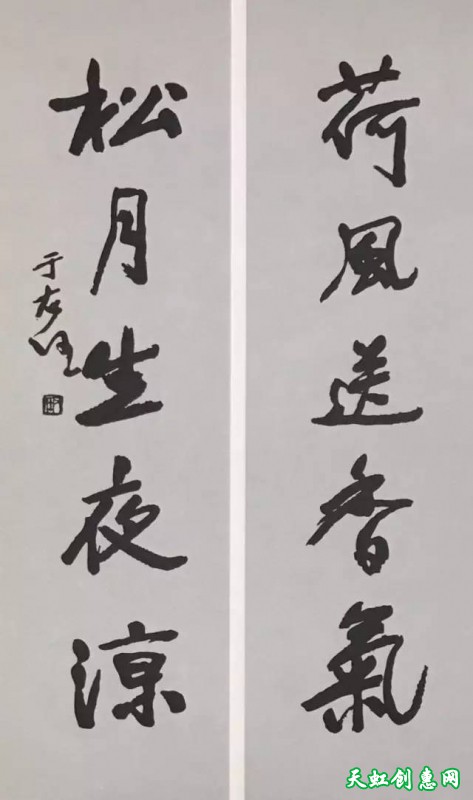 荷風送香氣
松月生夜涼
于右任
天虹创惠网